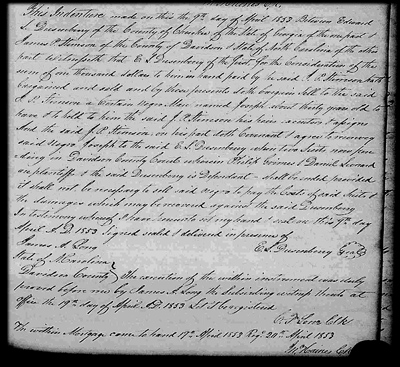 This Indenture made on this the 9th day of April 1853 Between Edward
L. Dusenbery of the County of of the State of Georgia of the one part &
James P. Stimson of the County of Davidson & State of North Carolina of the other
part Witnesseth that E. L. Dusenbery of the first For the Consideration of the
sum of one thousand dollars to him in hand paid by the said J. P. Stimson hath
bargained and sold and by these presents doth bargain Sell to the said
J. P. Stimson a Certain Negro Man named Joseph about thirty years old to
have & to hold to him the said J. P. Stimson his heirs executors & assigns
And the said J. P. Stimson on his part doth Covenant & agree to reconvey
said Negro Joseph to the said E. L. Dusenbery when two Suits now pen-
ding in Davidson County Courts wherein Philip & Daniel Leonard
are plaintiffs & the said Dusenbery is Defendant shall be ended provided
it shall not be necessary to sell said negro to pay the Costs of said Suits &
the damages which may be recovered against the said Dusenbery
In testimony whereof I have hereunto set my hand & seal on this 9th day
April A.D. 1853 Signed sealed & delivered in presence of
James A. Long E. L. Dusenbery
State of N Carolina
Davidson County The execution of the within instrument was duly
proved before me by James A. Long the Subscribing witness thereto at
office the 19th day of April A.D. 1853 Let it be registered
Clk
The within Mortgage came to hand 19th April 1853 Regd 20th April 1853